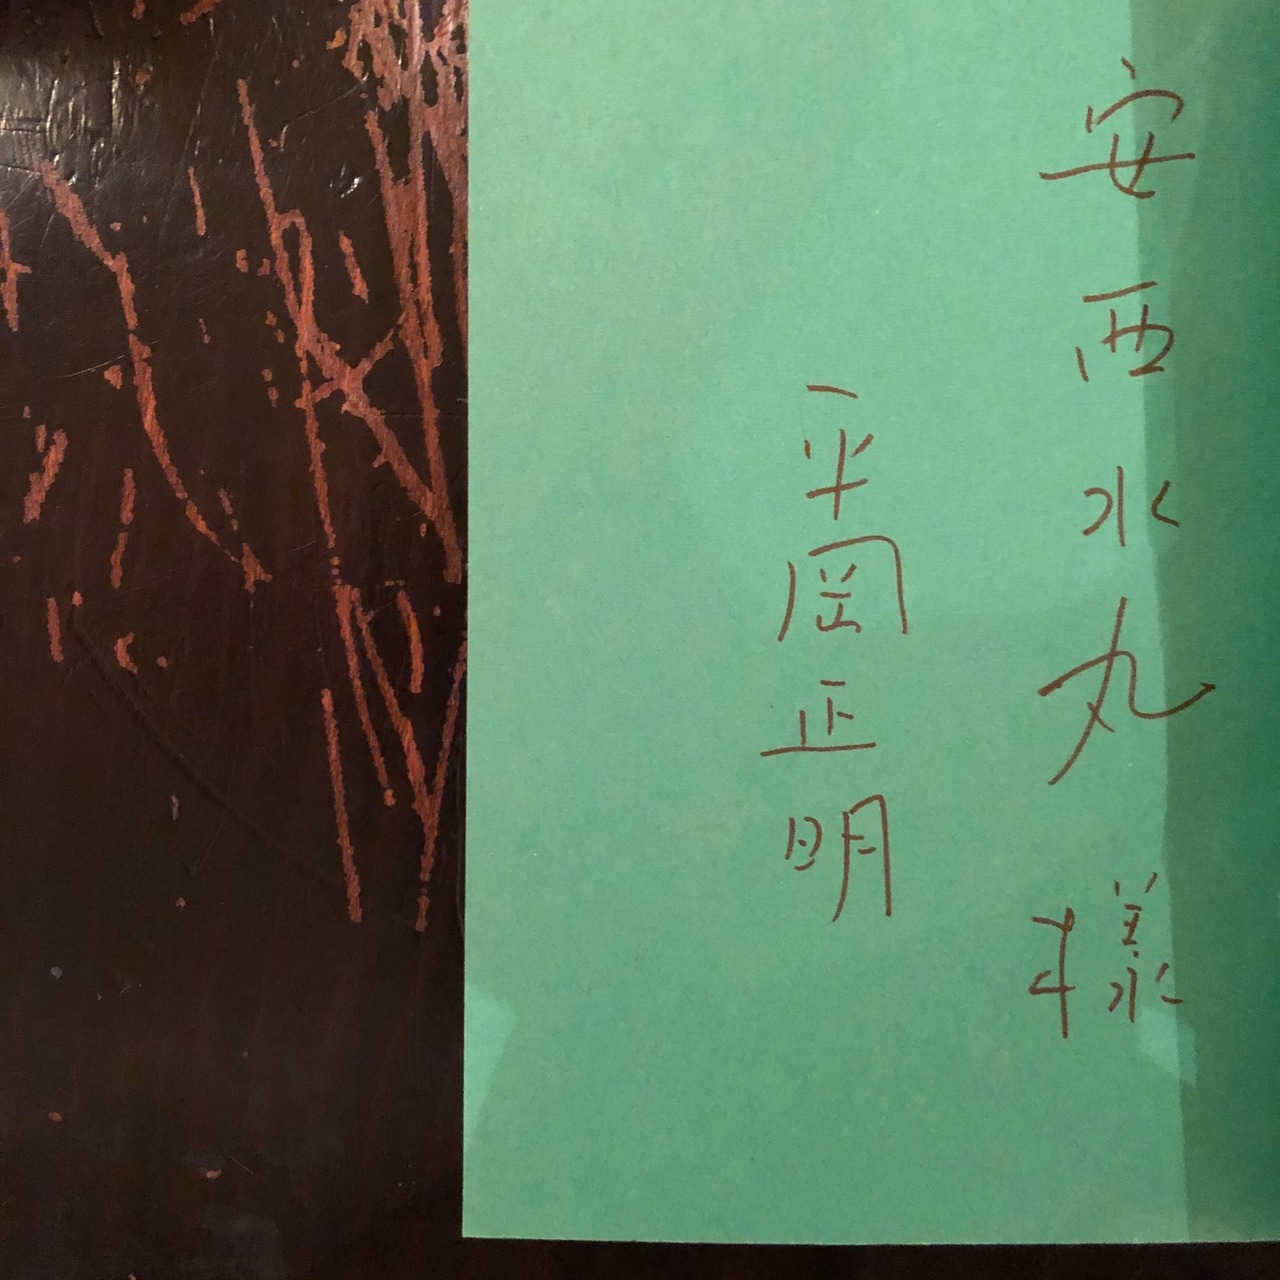 安西水丸様
平岡正明